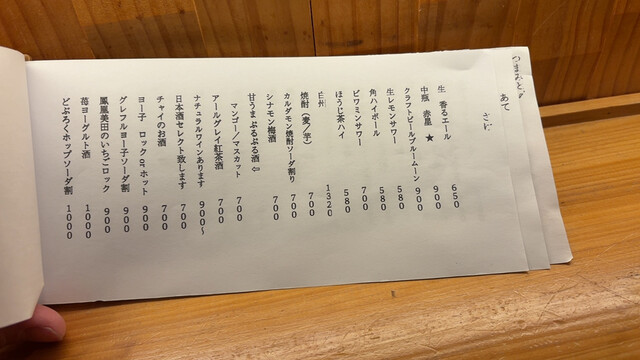 つまみ
あて
生 香るエール 650
中瓶 赤星 ★ 900
クラフトビールブルームーン 900
生レモンサワー 580
角ハイボール 580
ビワミンサワー 700
ほうじ茶ハイ 580
白州 1320
焼酎(麦/芋) 700
カルダモン焼酎ソーダ割り 700
シナモン梅酒 700
甘うま ぷるぷる酒 ⇦
マンゴー/マスカット 700
アールグレイ紅茶酒 700
ナチュラルワインあります 900～
日本酒セレクト致します 700
チャイのお酒 700
ヨー子 ロック or ホット 900
グレフルヨー子ソーダ割 900
鳳凰美田のいちごロック 900
苺ヨーグルト酒 1000
どぶろくホップソーダ割 1000